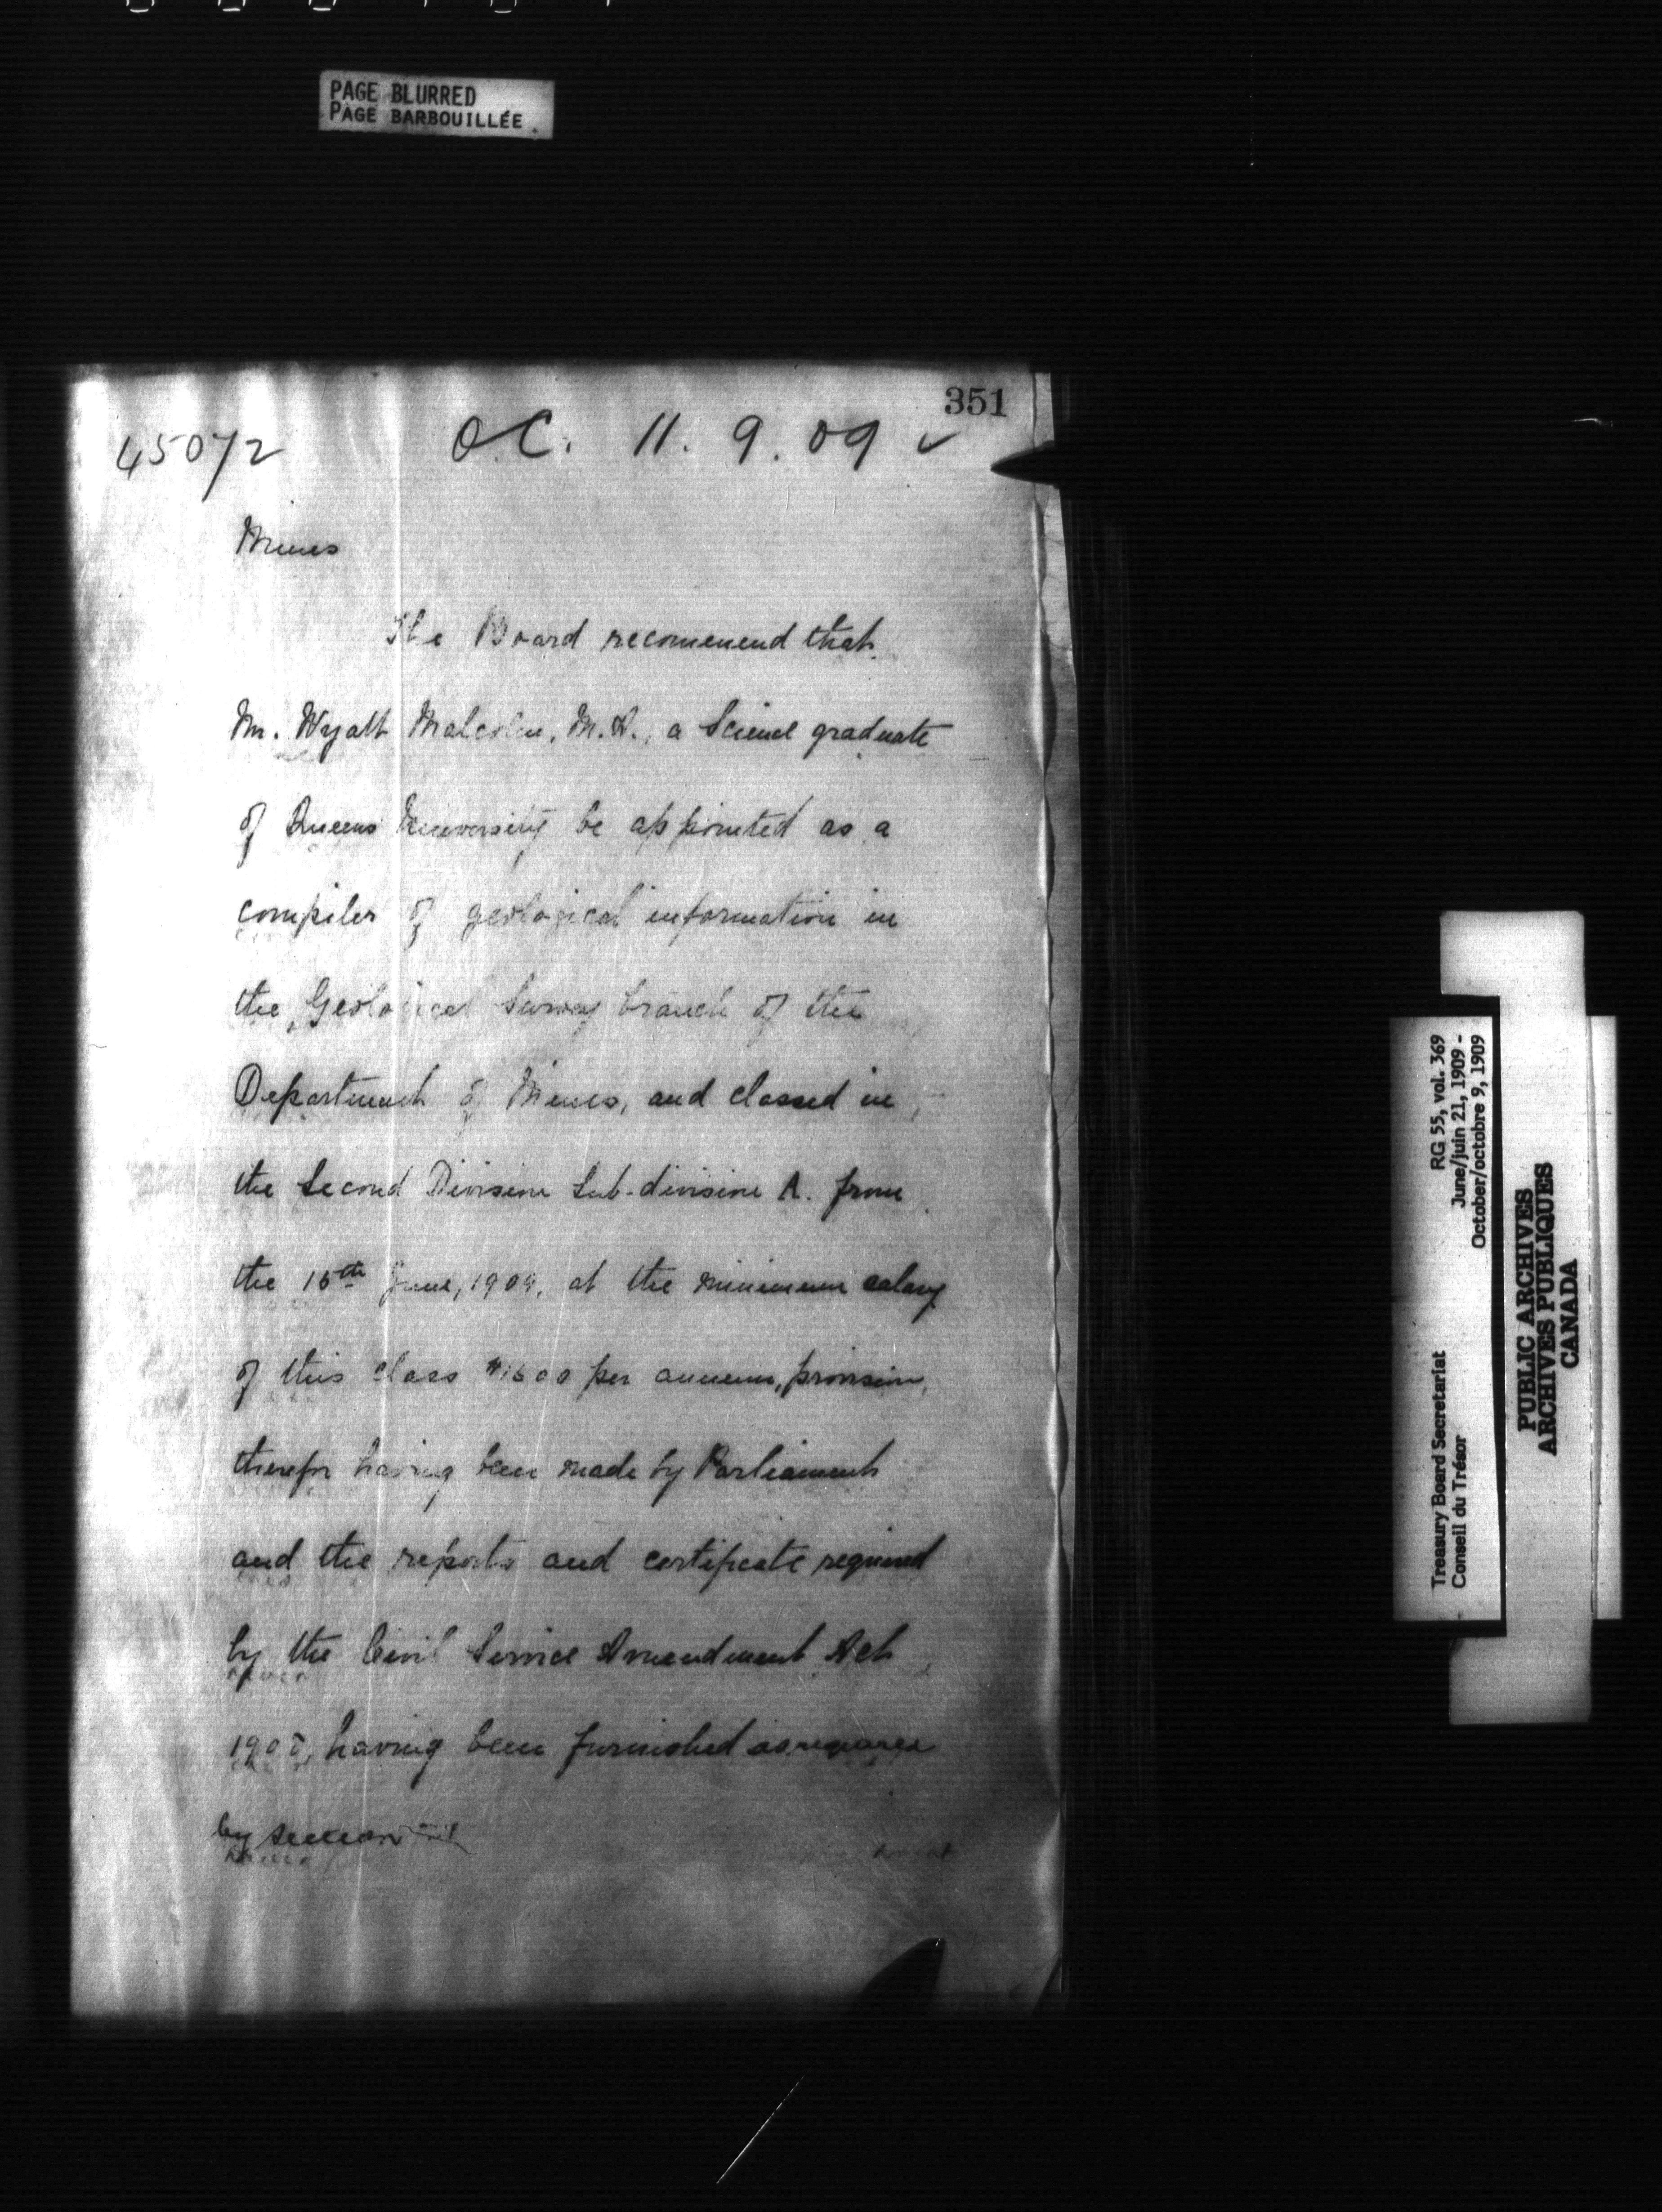 PAGE BLURRED
PAGE BARBOUILLÉE
351
45072 O.C. 11. 9. 09 ✓
Mines
The Board recommend that
Mr. Wyatt Malcolm, M.A., a Science graduate
of Queens University be appointed as a
compiler of geological information in
the Geological Survey branch of the
Department of Mines, and classed in
the Second Division Sub-division A. from
the 15th June, 1909, at the minimum salary
of this class $1600 per annum, provision
therefor having been made by Parliament
and the reports and certificate required
by the Civil Service Amendment Act
1908, having been furnished as required
by section
RG 55, vol. 369
June/juin 21, 1909 -
October/octobre 9, 1909
Treasury Board Secretariat
Conseil du Trésor
PUBLIC ARCHIVES
ARCHIVES PUBLIQUES
CANADA